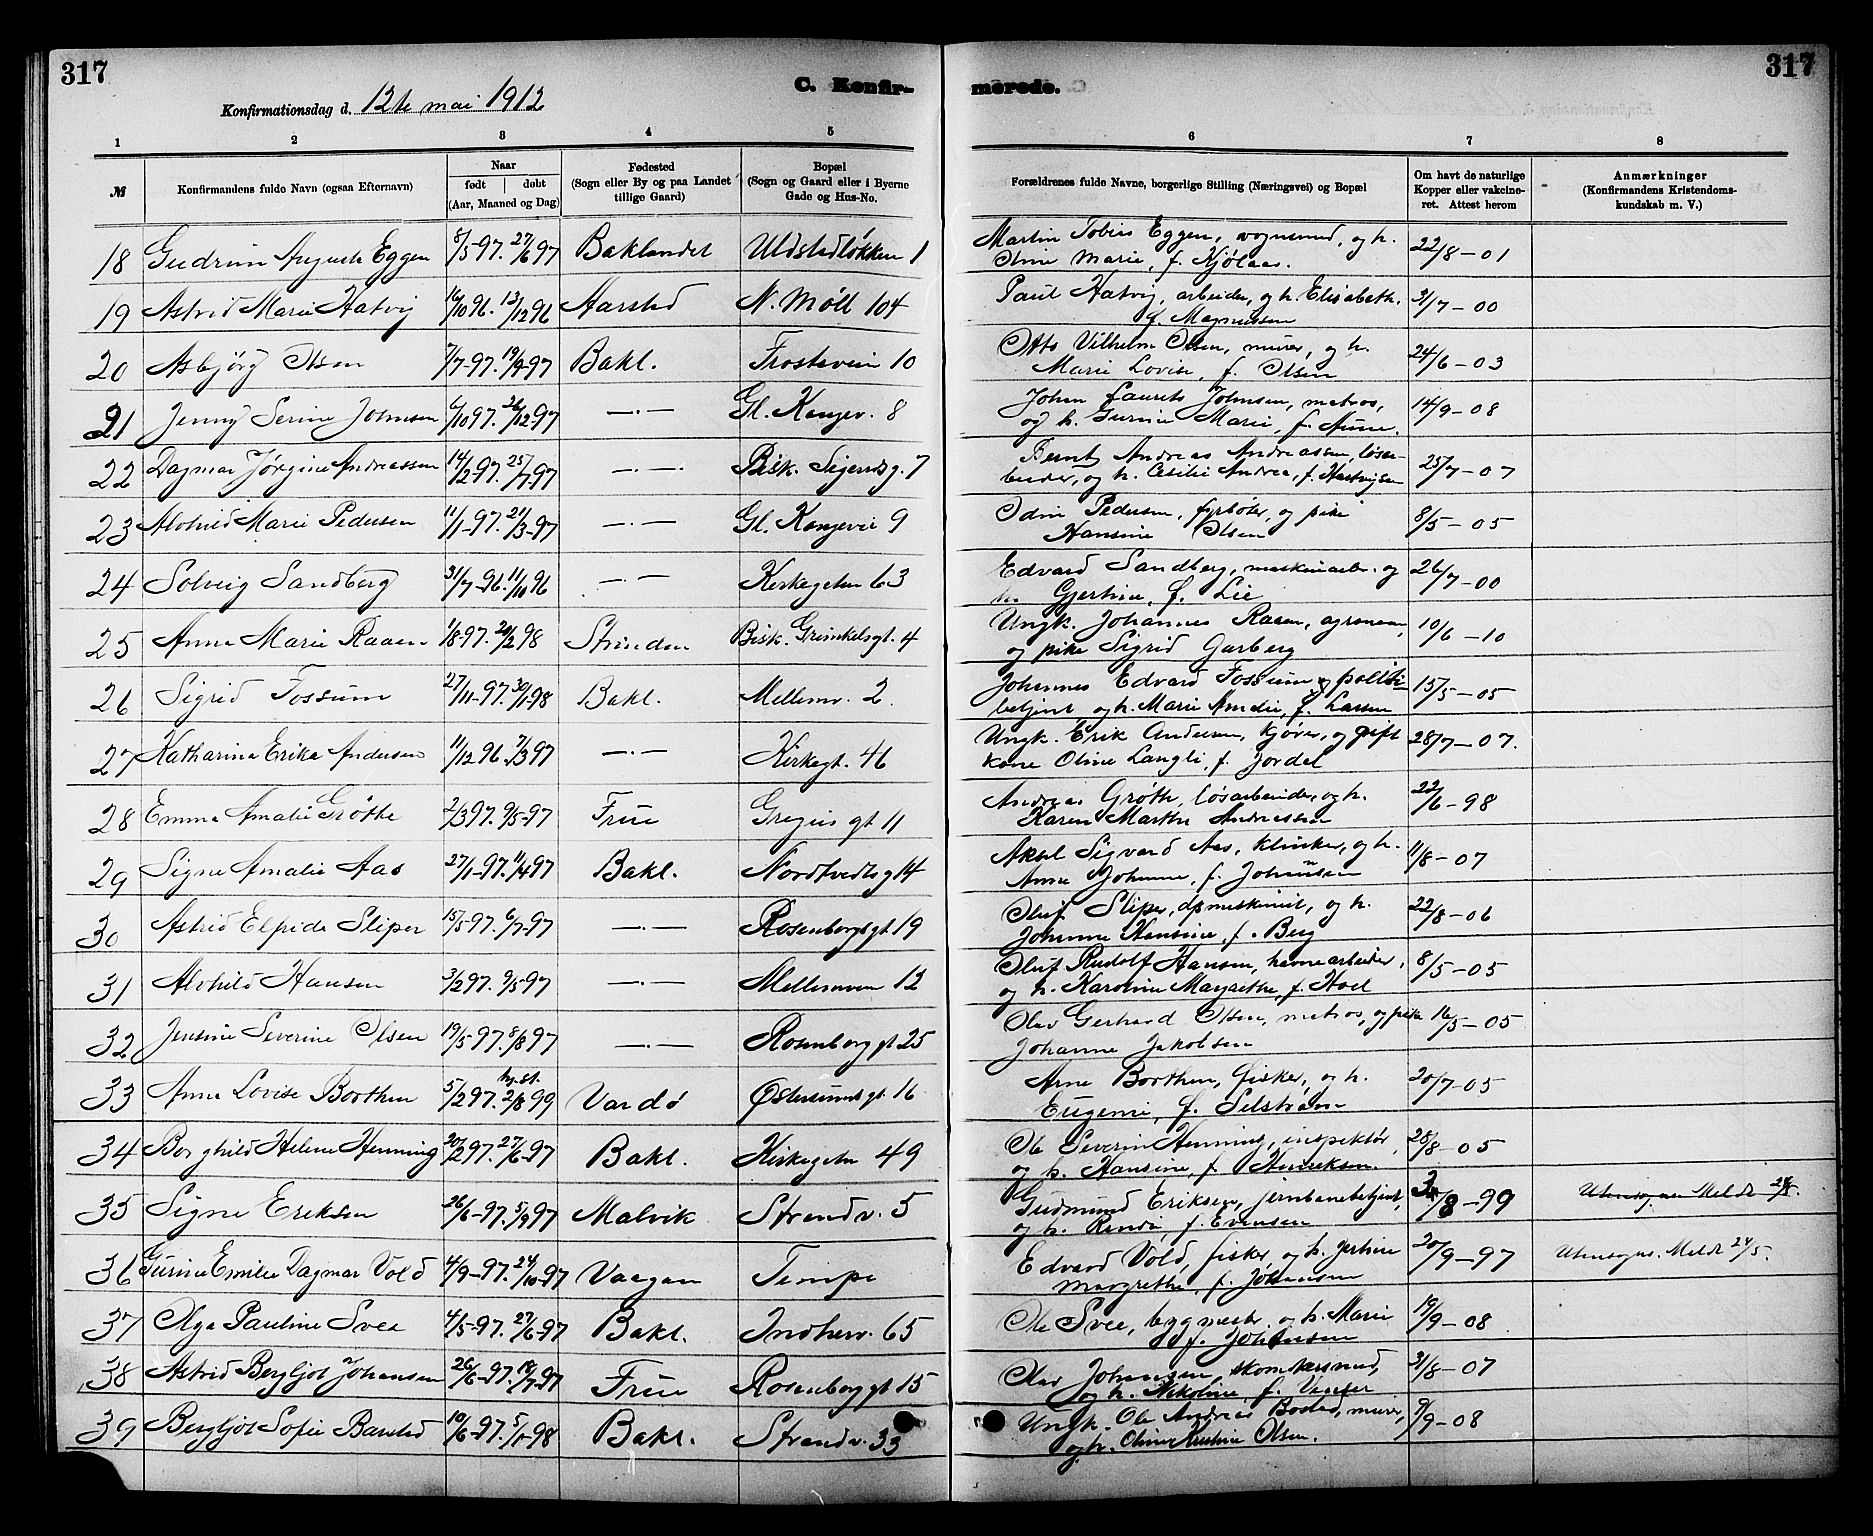 317
317
C. Konfir-
merede.
Konfirmationsdag d. 12te mai 1912
1 2 3 4 5 6 7 8
№
Konfirmandens fulde Navn (ogsaa Efternavn)
Naar
født døbt
(Aar, Maaned og Dag)
Fødested
(Sogn eller By og paa Landet
tillige Gaard)
Bopæl
(Sogn og Gaard eller i Byerne
Gade og Hus-No.
Forældrenes fulde Navne, borgerlige Stilling (Næringsvei) og Bopæl
Om havt de naturlige
Kopper eller vakcine-
ret. Attest herom
Anmærkninger
(Konfirmandens Kristendoms-
kundskab m. V.)
18 Gudrun Augusta Eggen 8/5-97. 27/6 97 Baklandet Uldstadløkken 1 Martin Tobias Eggen, vognmand, og h. 22/8-01
Oline Marie, f. Kjølaas.
19 Astrid Marie Hatvig 16/10 96. 13/12 96 Aarstad N. Møll 104 Paul Hatvig, arbeider, og h. Elisabeth. 3/7-00
f. Magnussen
20 Asbjørg Olsen 7/7-97. 19/9-97 Bakl. Frostaveien 10 Otto Vilhelm Olsen, murer, og h. 24/6-03
Marie Lovise, f. Olsen
21 Jenny Serine Johnsen 6/10 97. 26/12 97 —.— Gl. Kongev. 8 Johan Laurits Johnsen, matros, 14/9-08
og h. Gurine Marie, f. Aune.
22 Dagmar Jørgine Andreassen 14/2-97. 25/7-97 —.— Bisk. Sigurdsg. 7 Bernt Andreas Andreassen, løsar- 25/7-07
beider, og h. Cecilie Andrea, f. Hartvigsen
23 Alvhild Marie Pedersen 11/1-97. 21/3-97 —.— Gl. Kongevei 9 Odin Pedersen, fyrbøter, og pike 8/5-05
Hansine Olsen
24 Solveig Sandberg 31/7-96. 11/10 96 —.— Kirkegaten 63 Edvard Sandberg, maskinarb. og 26/7-00
h. Gjertine, f. Lie
25 Anna Marie Raaen 1/8-97. 20/2 98 Strinden Bisk. Grimkelsgt. 4 Ungk. Johannes Raaen, agronom, 10/6-10
og pike Sigrid Garberg
26 Sigrid Fossum 27/11-97. 30/1-98 Bakl. Mellemv. 2. Johannes Edvard Fossum, politi- 15/5-05
betjent og h. Marie Amalie, f. Larsen
27 Katharina Erika Andersen 11/12 96. 7/3 97 —.— Kirkegt. 46 Ungk. Erik Andersen, kjører, og gift 28/7-07.
kone Oline Langli, f. Jordal
28 Emma Amalie Grøthe 2/3 97. 9/5-97 Frue Gregus gt 11 Andreas Grøth, løsarbeider, og h. 22/6-98
Karen Martha Andreassen
29 Signe Amalie Aas 27/1-97. 11/4 97 Bakl. Nordtvedtsg 14 Aksel Sigvard Aas, klinker, og h. 11/8-07
Anna Johanna, f. Johansen
30 Astrid Elfrida Sliper 15/5-97. 6/7-97 —.— Rosenborgsgt 19 Oluf Sliper, dpmaskinist, og h. 22/8-06
Johanna Hansine, f. Berg
31 Alvhild Hansen 3/2 97. 9/5-97 —.— Mellemveien 12 Oluf Rudolf Hansen, havnearbeider, 8/5-05
og h. Karoline Margrethe, f. Hoel
32 Jensine Severine Olsen 19/5-97. 8/8 97 —.— Rosenborg gt 25 Olav Gerhard Olsen, matros, og pike 16/5-05
Johanne Jakobsen
33 Anna Lovise Borthen 5/2 97. hj.st. 2/8 99 Vardø Østersunds gt. 16 Arne Borthen, fisker, og h. 20/7-05
Eugenie, f. Selstrøm
34 Borghild Helene Henning 20/2 97. 27/6-97 Bakl. Kirkegaten 49 Ole Severin Henning, inspektør, 28/8-05
og h. Hansine, f. Henriksen.
35 Signe Eriksen 26/6-97. 5/9 97 Malvik Strandv. 5 Gudmund Eriksen, jernbanebetjent, /8-99 Utensogns Meldt 24/5.
og h. Randi, f. Evensen
36 Gurine Emilie Dagmar Vold 4/9-97. 24/10-97 Vaagan Tempe Edvard Vold, fisker, og h. Jertine 20/9-97 Utensogns. Meldt 24/5.
Margrethe, f. Johansen
37 Olga Pauline Svee 4/5-97. 27/6-97 Bakl. Indherv. 65 Ole Svee, bygmester. og h. Marie 19/9-08
f. Johansen
38 Astrid Bergljot Johansen 26/6-97. 18/7-97 Frue Rosenborg gt 15 Olav Johansen, skomakersvend, 31/8-07
og h. Nikoline f.
39 Bergljot Sofie Baustad 10/6-97. 5/1-98 Bakl. Strandv. 33 Ungk. Ole Andreas Bostad, murer, 9/9-08
og h. Oline Kristine Olsen.